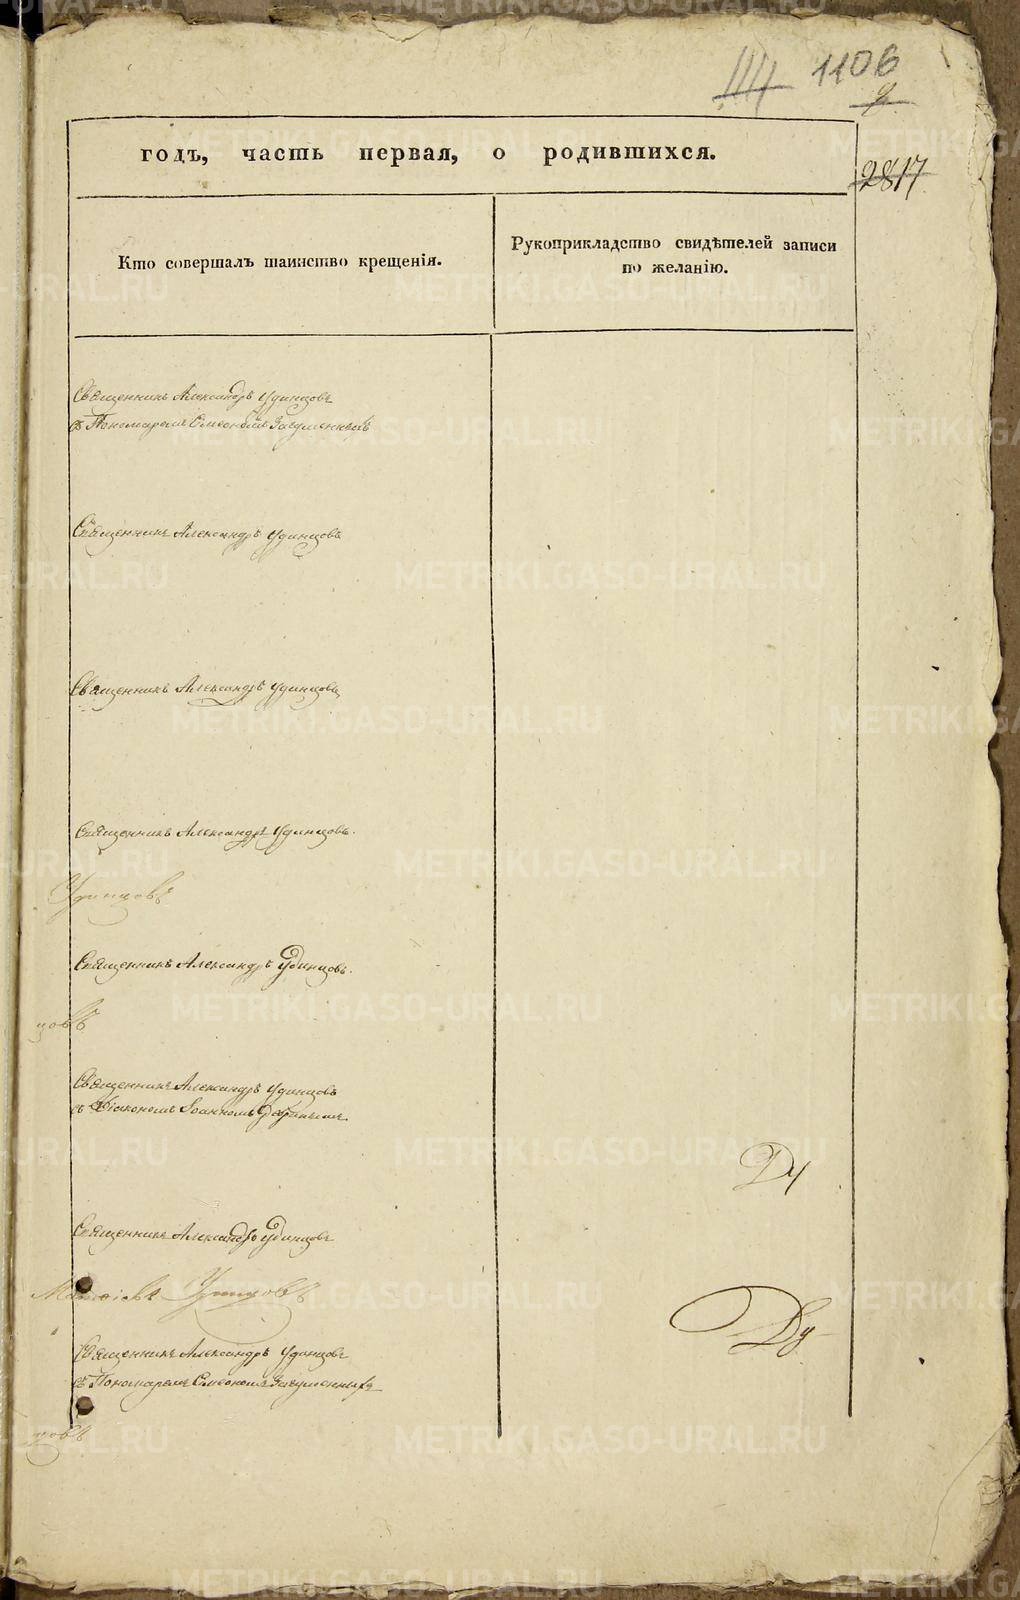 1106
2817
годъ, часть первая, о родившихся.
Кто совершалъ таинство крещенія.
Рукоприкладство свидѣтелей записи
по желанію.
Священникъ Александръ Удинцовъ
съ Пономаремъ Симеономъ
Священникъ Александръ Удинцовъ
Священникъ Александръ Удинцовъ
Священникъ Александръ Удинцовъ.
Удинцовъ
Священникъ Александръ Удинцовъ.
цовъ
Священникъ Александръ Удинцовъ
съ Діакономъ Іоанномъ
Священникъ Александръ Удинцовъ
Удинцовъ
Священникъ Александръ Удинцовъ
съ Пономаремъ Симеономъ
цовъ
METRIKI.GASO-URAL.RU